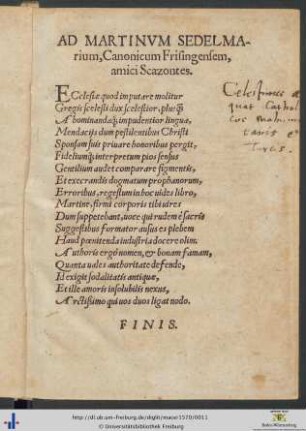 AD MARTINVM SEDELMA-
rium, Canonicum Frisingensem,
amici Scazontes.
ECclesiæ quod imputare molitur
Gregis scelesti dux scelestior, plusq́;
Abominandaq́; impudentior linguæ,
Mendacijs dum pestilentibus Christi
Sponsam suis priuare honoribus pergit,
Fideliumq́; interpretum pios sensus
Gentilium audet comparare figmentis,
Et execrandis dogmatum prophanorum,
Erroribus, regestum in hoc uides libro,
Martine, firmi corporis tibi uires
Dum suppetebant, uoce qui rudem è sacris
Suggestibus formator ausus es plebem
Haud pœnitenda industria docere olim.
Authoris ergò nomen, & bonam famam,
Quanta uales authoritate defende,
Id exigit sodalitatis antiquæ,
Et ille amoris insolubilis nexus,
Arctissimo qui uos duos ligat nodo.
FINIS.
quat Cathol
et
http://dl.ub.uni-freiburg.de/diglit/macer1570/0011
© Universitätsbibliothek Freiburg
Baden-Württemberg